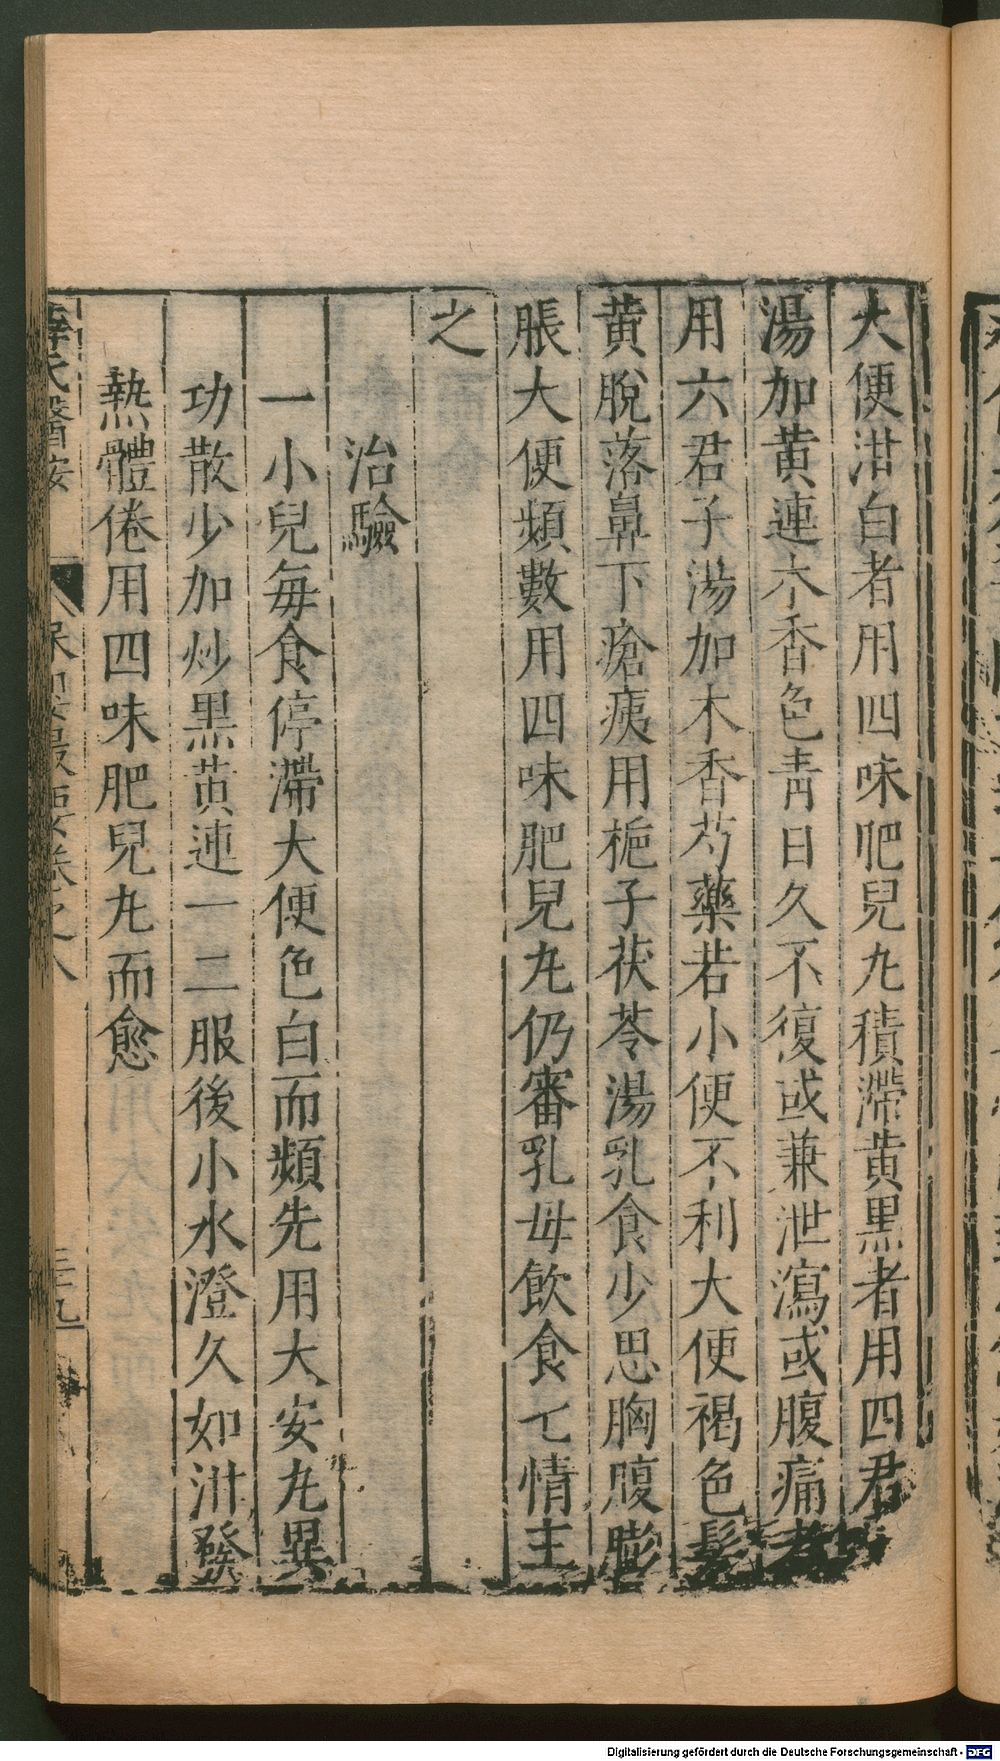 大便泔白者用四味肥兒九積滯黄黒者用四君
湯加黄連木香色青日久不復或兼泄瀉或腹痛者
用六君子湯加木香芍藥若小便不利大便褐色髮
黄脫落鼻下瘡痍用梔子茯苓湯乳食少思胸腹膨
脹大便頻數用四味肥兒九仍審乳母飲食七情主
之
治驗
一小兒毎食停滯大便色白而頻先用大安九異
功散少加炒黒黄連一二服後小水澄久如泔發
熱體倦用四味肥兒九而愈
薛氏醫按
保嬰撮要卷之八
三九
Digitalisierung gefördert durch die Deutsche Forschungsgemeinschaft - DFG